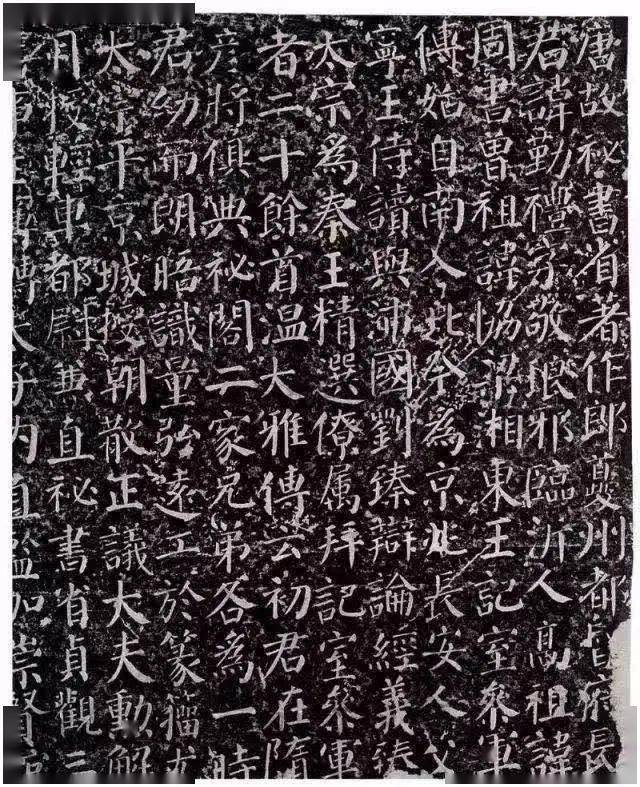 唐故祕書省著作郎夔州都督府長
君諱勤禮字敬琅邪臨沂人高祖諱
周書曾祖諱協梁湘東王記室參軍
傳始自南入北今爲京兆長安人父
寧王侍讀與沛國劉臻辯論經義臻
太宗爲秦王精選僚属拜記室參軍
者二十餘首温大雅傳云初君在隋
彦將俱典祕閣二家兄弟各爲一時
君幼而朗晤識量弘遠工於篆籀尤
太宗平京城授朝散正議大夫勳解
月授輕車都尉兼直祕書省貞觀三
轉太子内直監加崇賢館